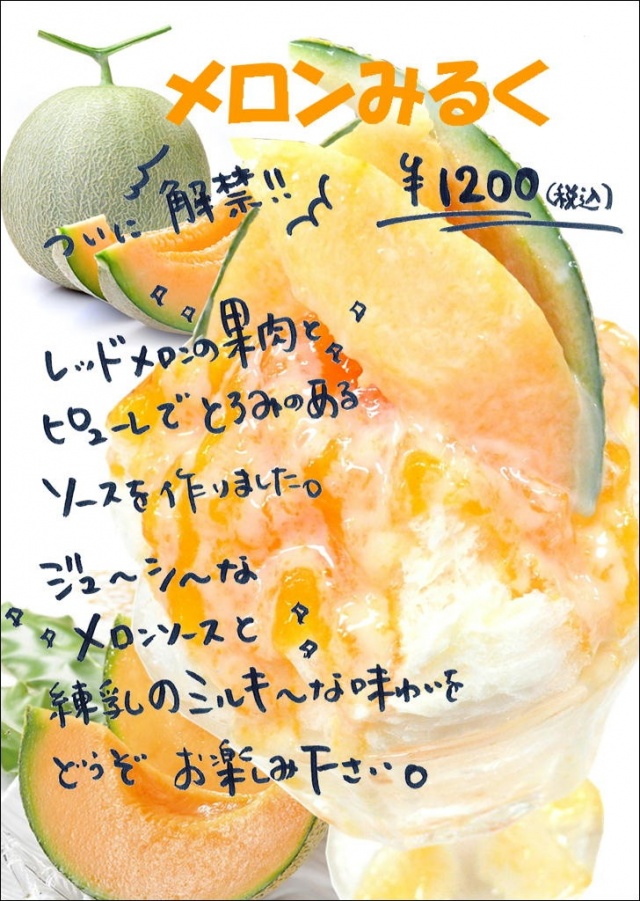 メロンみるく
¥1200(税込)
ついに解禁!!
レッドメロンの果肉と
ピューレでとろみのある
ソースを作りました。
ジュ〜シ〜な
メロンソースと
練乳のミルキ〜な味わいを
どうぞ お楽しみ下さい。